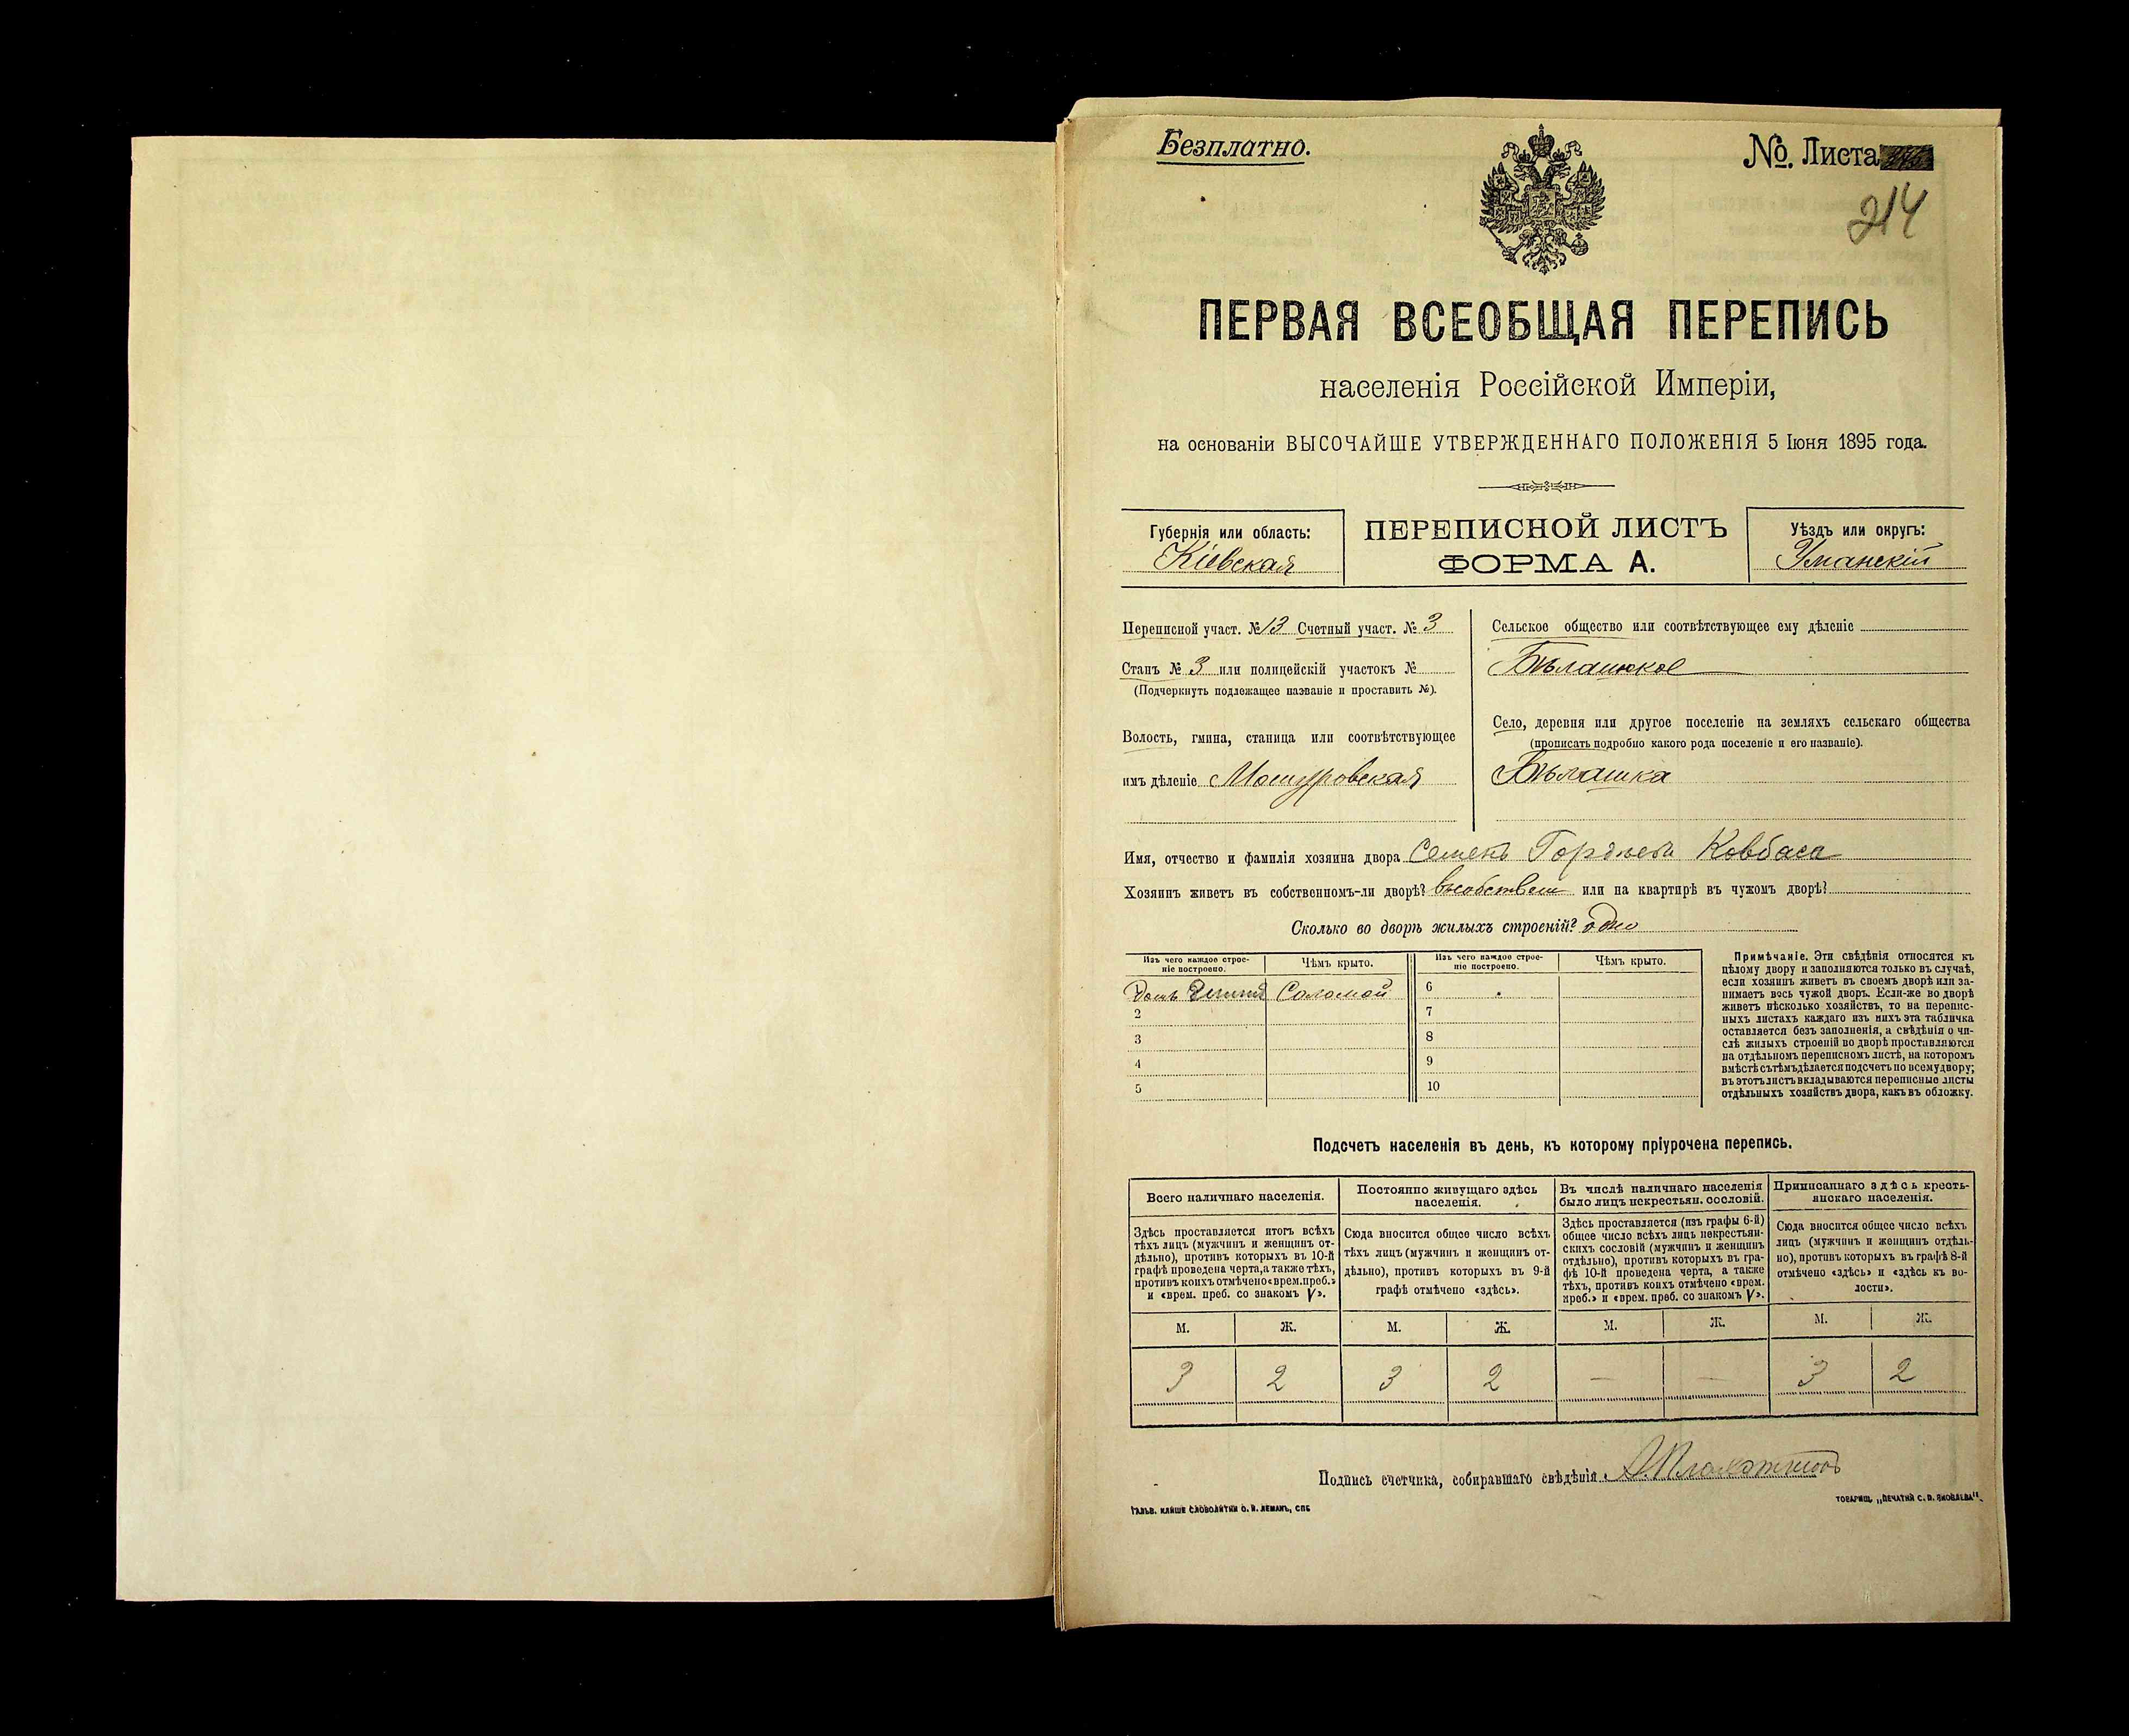 Безплатно.
№. Листа
214
ПЕРВАЯ ВСЕОБЩАЯ ПЕРЕПИСЬ
населенія Россійской Имперіи,
на основаніи ВЫСОЧАЙШЕ УТВЕРЖДЕННАГО ПОЛОЖЕНІЯ 5 Іюня 1895 года.
Губернія или область:
Кіевская
ПЕРЕПИСНОЙ ЛИСТЪ
ФОРМА А.
Уѣздъ или округъ:
Уманскій
Переписной участ. № 13 Счетный участ. № 3
Станъ № 3 или полицейскій участокъ №
(Подчеркнуть подлежащее названіе и проставить №).
Волость, гмина, станица или соотвѣтствующее
имъ дѣленіе Мошуровская
Сельское общество или соотвѣтствующее ему дѣленіе
Бѣлашкское
Село, деревня или другое поселеніе на земляхъ сельскаго общества
(прописать подробно какого рода поселеніе и его названіе).
Бѣлашка
Имя, отчество и фамилія хозяина двора Семенъ Гордѣевъ Ковбаса
Хозяинъ живетъ въ собственномъ-ли дворѣ? въ собствен или на квартирѣ въ чужомъ дворѣ?
Сколько во дворѣ жилыхъ строеній? одно
Изъ чего каждое строе-
ніе построено.
Чѣмъ крыто.
Изъ чего каждое строе-
ніе построено.
Чѣмъ крыто.
Домъ Соломой
6
2
7
3
8
4
9
5
10
Примѣчаніе. Эти свѣдѣнія относятся къ
цѣлому двору и заполняются только въ случаѣ,
если хозяинъ живетъ въ своемъ дворѣ или за-
нимаетъ весь чужой дворъ. Если-же во дворѣ
живетъ нѣсколько хозяйствъ, то на перепис-
ныхъ листахъ каждаго изъ нихъ эта табличка
оставляется безъ заполненія, а свѣдѣнія о чи-
слѣ жилыхъ строеній во дворѣ проставляются
на отдѣльномъ переписномъ листѣ, на которомъ
вмѣстѣ съ тѣмъ дѣлается подсчетъ по всему двору;
въ этотъ листъ вкладываются переписные листы
отдѣльныхъ хозяйствъ двора, какъ въ обложку.
Подсчетъ населенія въ день, къ которому пріурочена перепись.
Всего наличнаго населенія.
Здѣсь проставляется итогъ всѣхъ
тѣхъ лицъ (мужчинъ и женщинъ от-
дѣльно), противъ которыхъ въ 10-й
графѣ проведена черта, а также тѣхъ,
противъ коихъ отмѣчено «врем. преб.»
и «врем. преб. со знакомъ V».
Постоянно живущаго здѣсь
населенія.
Сюда вносится общее число всѣхъ
тѣхъ лицъ (мужчинъ и женщинъ от-
дѣльно), противъ которыхъ въ 9-й
графѣ отмѣчено «здѣсь».
Въ числѣ наличнаго населенія
было лицъ некрестьян. сословій.
Здѣсь проставляется (изъ графы 6-й)
общее число всѣхъ лицъ некрестьян-
скихъ сословій (мужчинъ и женщинъ
отдѣльно), противъ которыхъ въ гра-
фѣ 10-й проведена черта, а также
тѣхъ, противъ коихъ отмѣчено «врем.
преб.» и «врем. преб. со знакомъ V».
Приписаннаго здѣсь кресть-
янскаго населенія.
Сюда вносится общее число всѣхъ
лицъ (мужчинъ и женщинъ отдѣль-
но), противъ которыхъ въ графѣ 8-й
отмѣчено «здѣсь» и «здѣсь къ во-
лости».
М. Ж. М. Ж. М. Ж. М. Ж.
3 2 3 2 — — 3 2
Подпись счетчика, собиравшаго свѣдѣнія
ГАЛЬВ. КЛИШЕ СЛОВОЛИТНИ О. И. ЛЕМАНЪ, СПБ
ТОВАРИЩ. „ПЕЧАТНЯ С. П. ЯКОВЛЕВА".